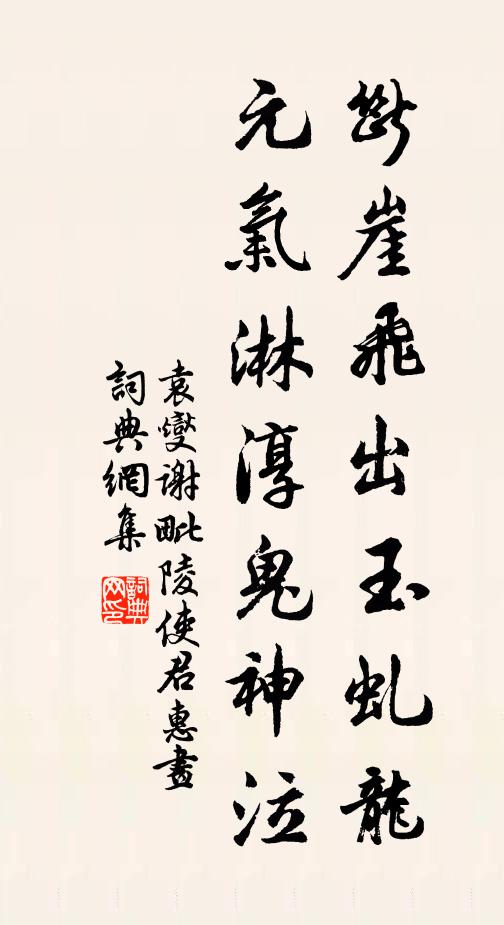 斷崖飛出玉虬龍
元氣淋淳鬼神泣
袁燮謝毗陵使君惠畫
詞典網集
詞典网印